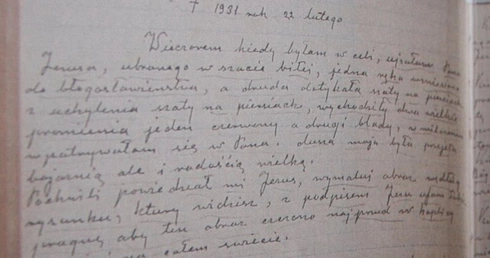 † 1931 rok 22 lutego
Wieczorem kiedy byłam w celi, ujrzałam Pana
Jezusa, ubranego w szacie białej, jedna ręka wzniesiona
do błogosławieństwa, a druga dotykała szaty na piersiach
z uchylenia szaty na piersiach, wychodziły dwa wielkie
promienia jeden czerwony a drugi blady, w milczeniu
wpatrywałam się w Pana. dusza moja była przejęta
bojaźnią ale i radością wielką.
Po chwili powiedział mi Jezus, wymaluj obraz według
rysunku, który widzisz, z podpisem Jezu ufam Tobie
pragnę aby ten obraz czczono najprzód w kaplicy
na całem świecie.